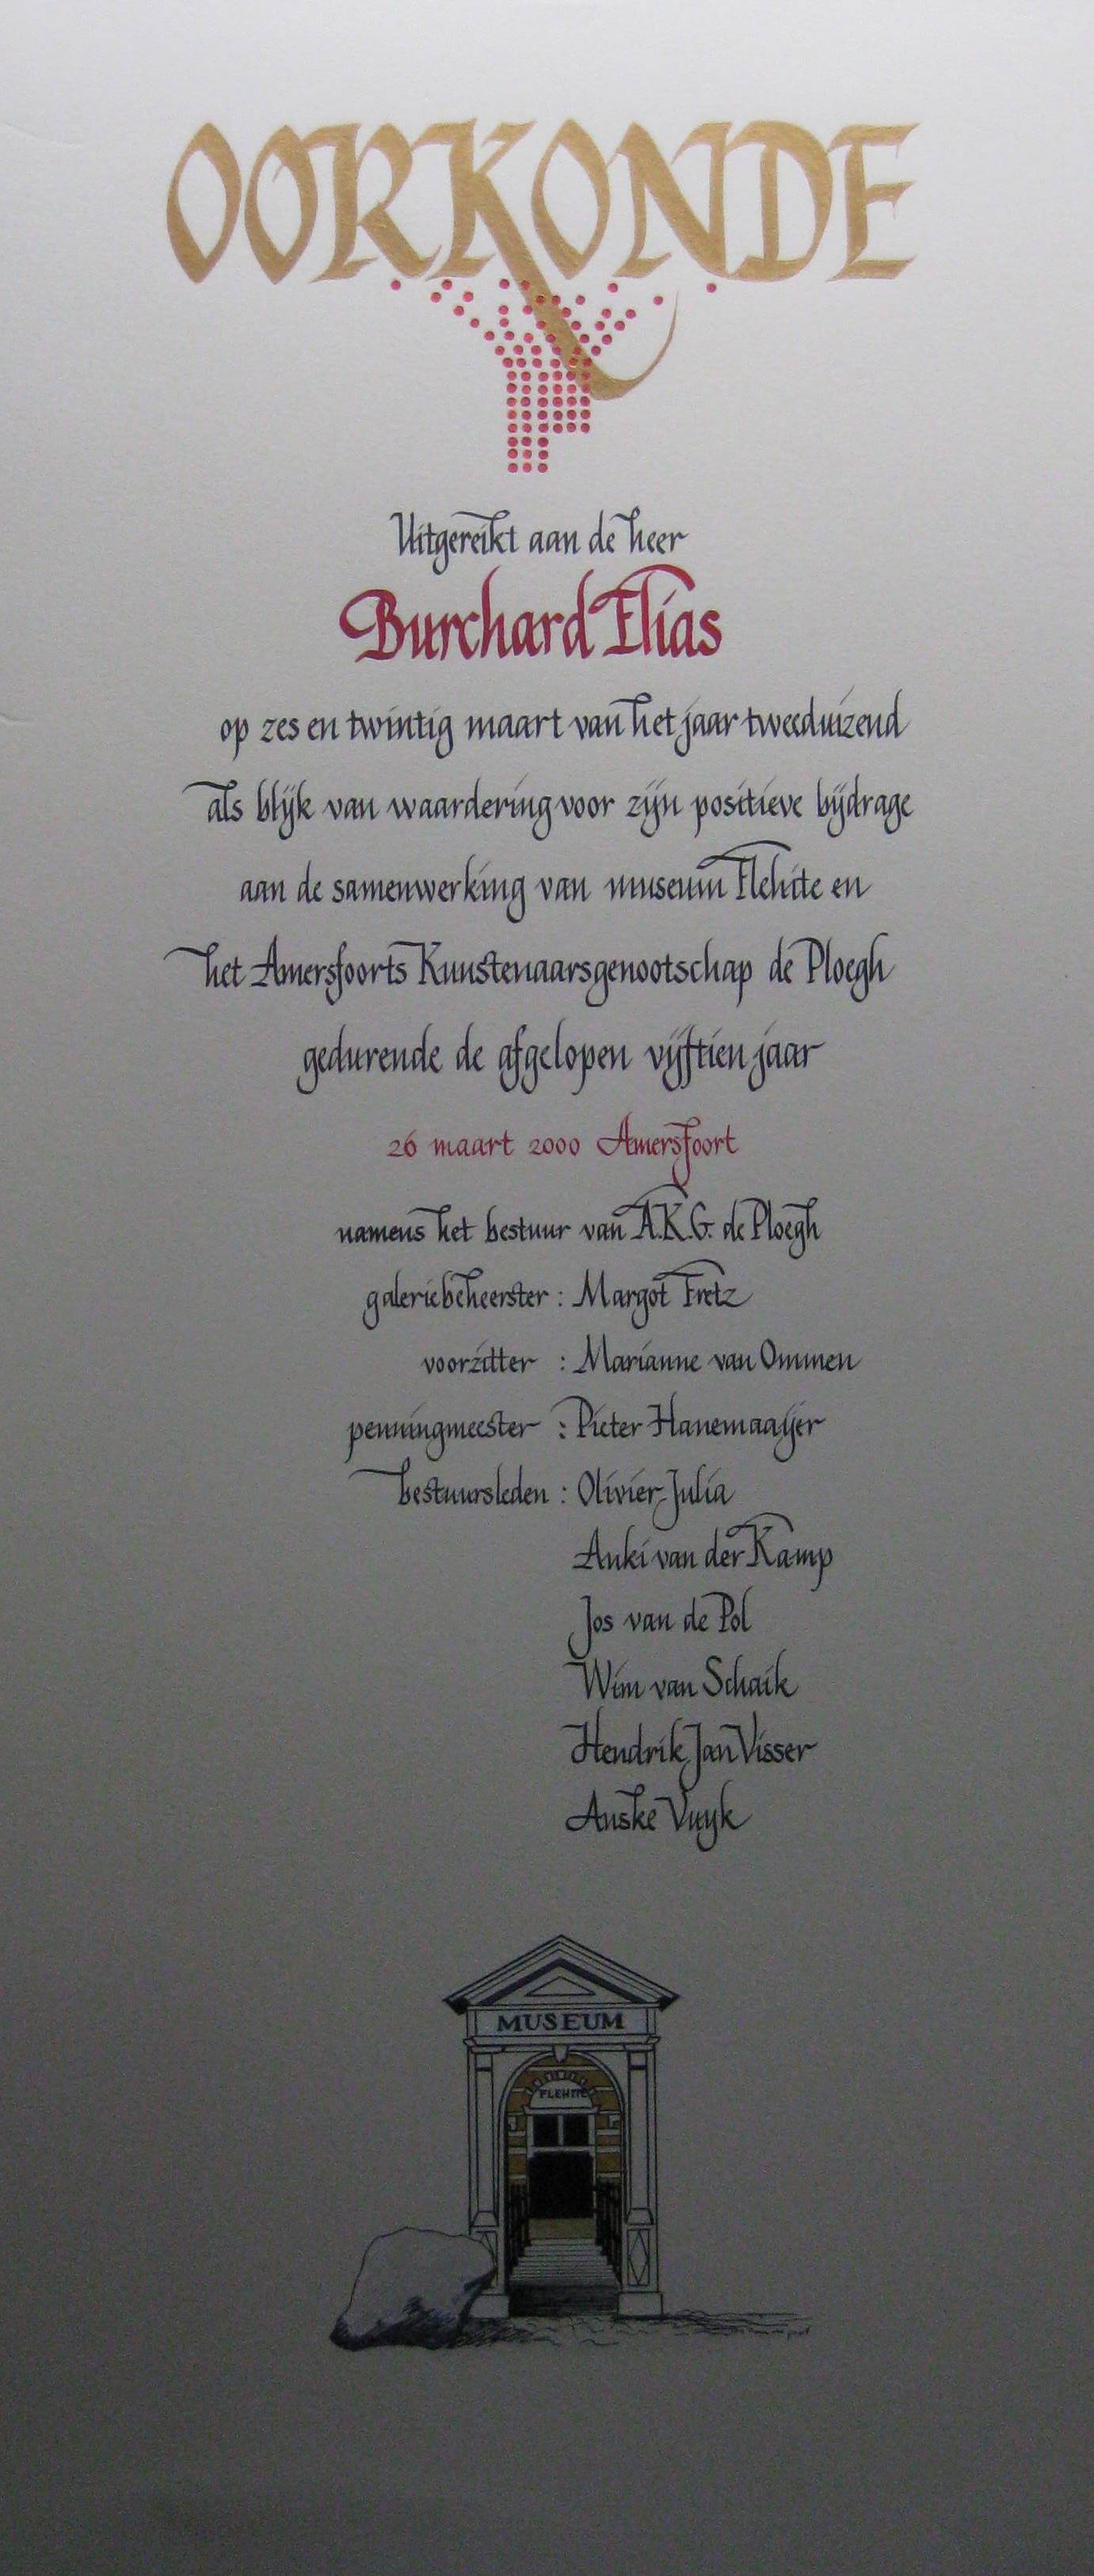 OORKONDE
Uitgereikt aan de heer
Burchard Elias
op zes en twintig maart van het jaar tweeduizend
als blijk van waardering voor zijn positieve bijdrage
aan de samenwerking van museum Flehite en
het Amersfoorts Kunstenaarsgenootschap de Ploegh
gedurende de afgelopen vijftien jaar
26 maart 2000 Amersfoort
namens het bestuur van A.K.G. de Ploegh
galeriebeheerster : Margot Fretz
voorzitter : Marianne van Ommen
penningmeester : Pieter Hanemaaijer
bestuursleden : Olivier Julia
Anki van der Kamp
Jos van de Pol
Wim van Schaik
Hendrik Jan Visser
Anske Vuyk
MUSEUM
FLEHITE